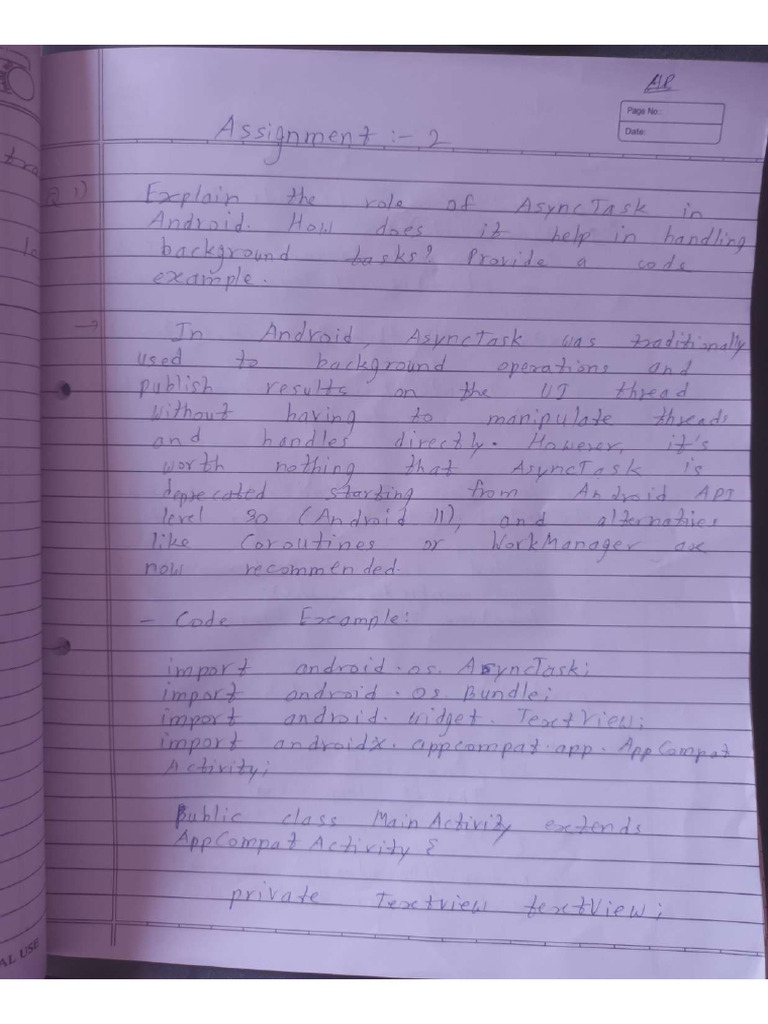 AR
Page No.:
Date:
Assignment :- 2
Q 1)
Explain the role of AsyncTask in
Android. How does it help in handling
background tasks? Provide a code
example.
→ In Android, AsyncTask was traditionally
used to background operations and
publish results on the UI thread
without having to manipulate threads
and handles directly. However, it's
worth nothing that AsyncTask is
deprecated starting from Android API
level 30 (Android 11), and alternatives
like Coroutines or WorkManager are
now recommended.
- Code Example:
import android.os.AsyncTask;
import android.os.Bundle;
import android.widget.TextView;
import androidx.appcompat.app.AppCompat
Activity;
Public class MainActivity extends
AppCompatActivity {
private Textview textView;
AL USE